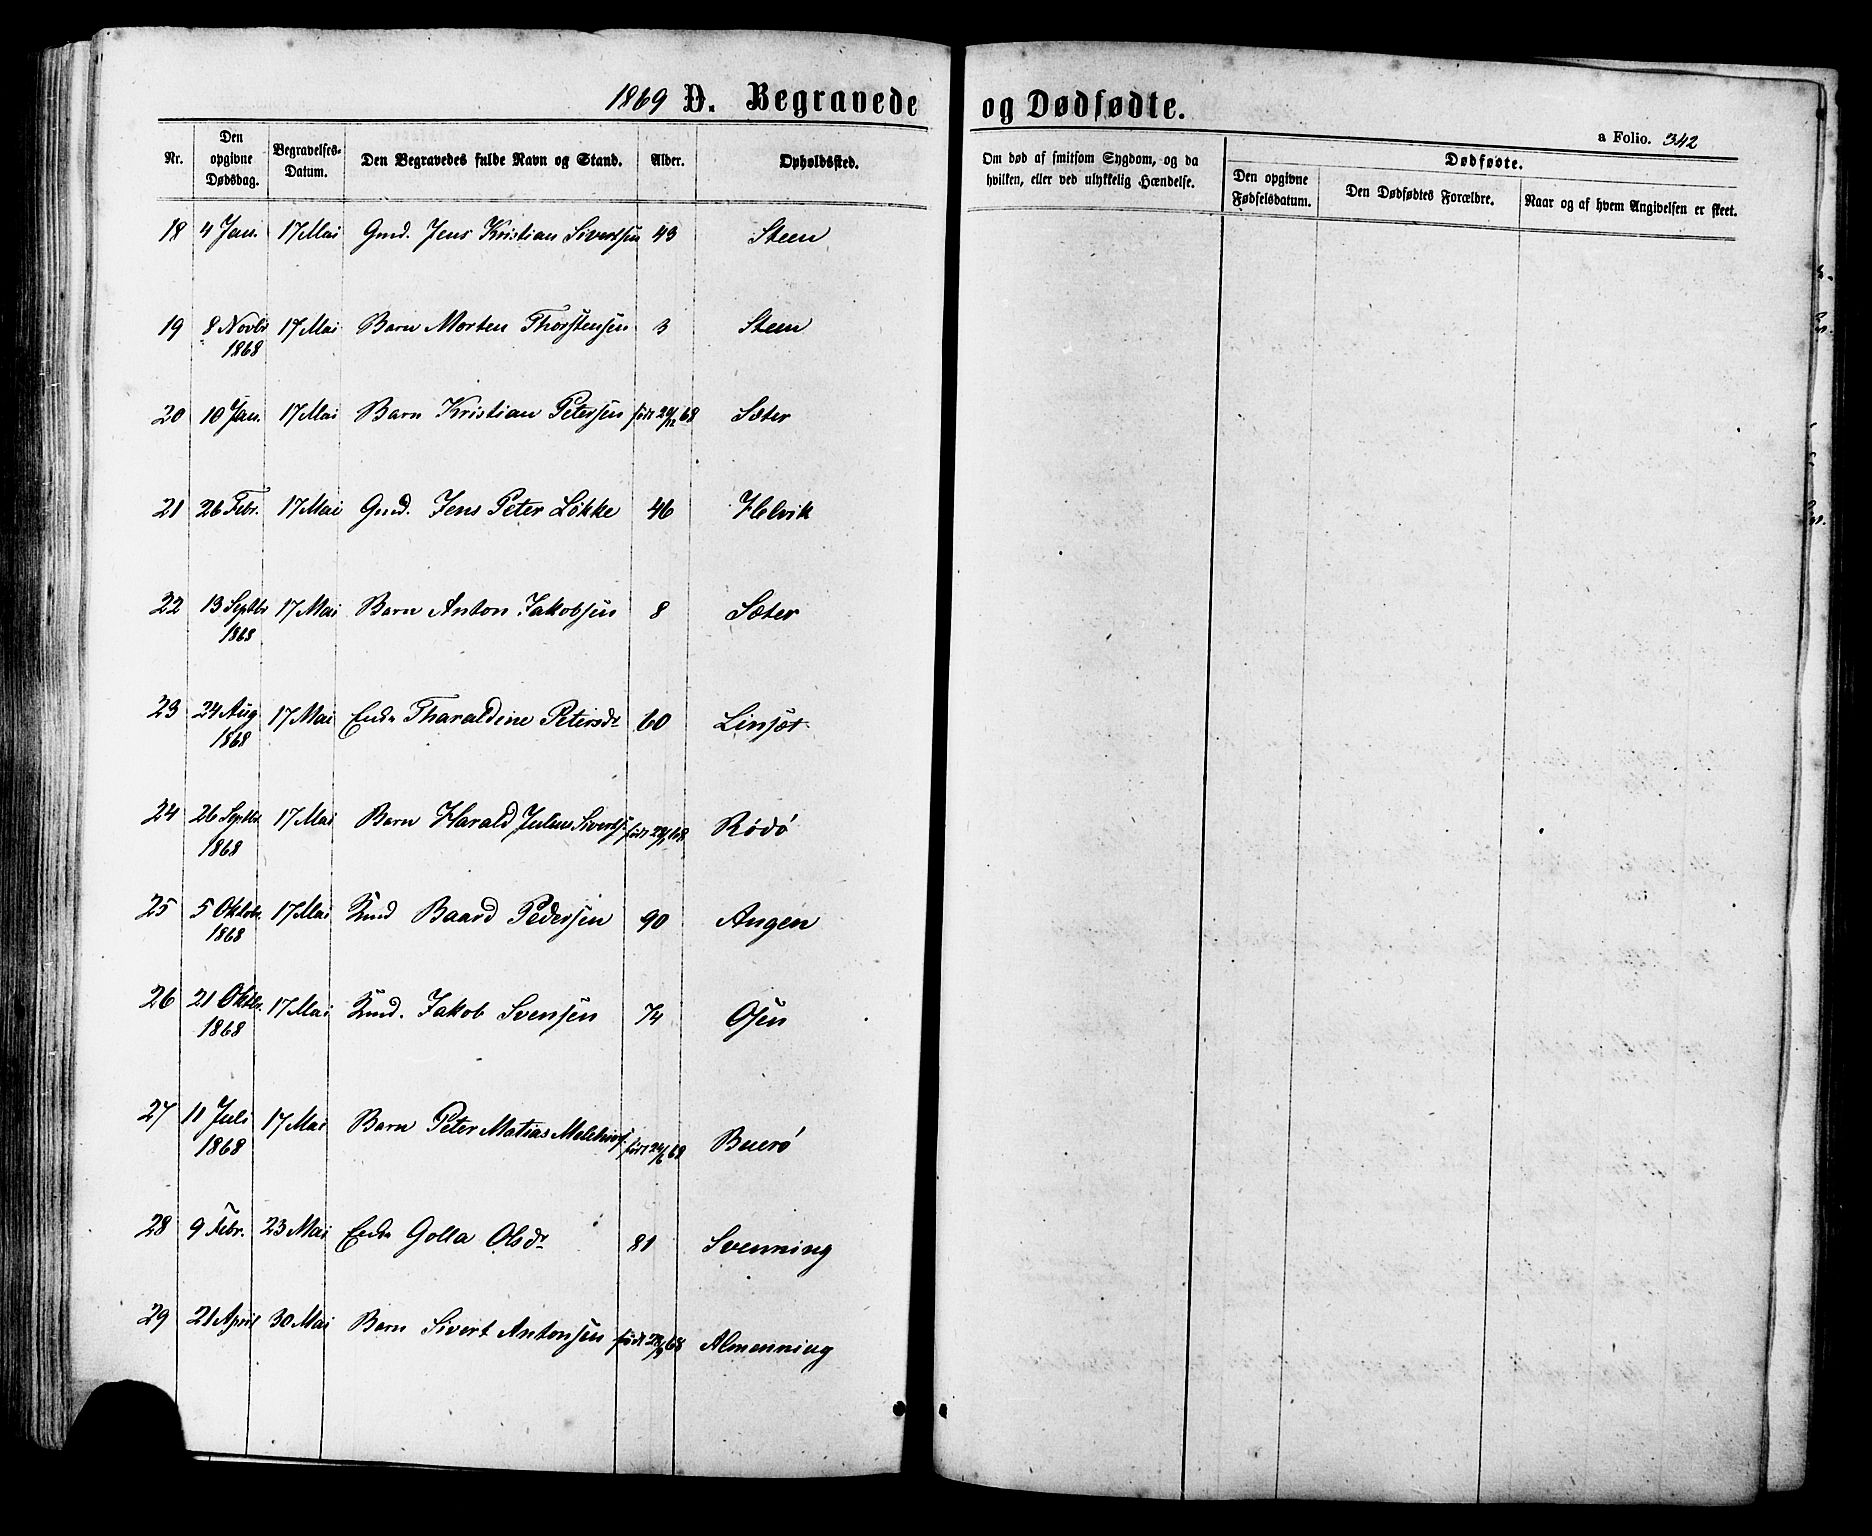 1869 D. Begravede og Dødfødte.
a Folio. 342
Nr. Den opgivne Dødsdag. Begravelses-Datum. Den Begravedes fulde Navn og Stand. Alder. Opholdssted. Om død af smitsom Sygdom, og da hvilken, eller ved ulykkelig Hændelse. Dødfødte. Den opgivne Fødselsdatum. Den Dødfødtes Forældre. Naar og af hvem Angivelsen er skeet.
18 4 Jan. 17 Mai Gmd. Jens Kristian Sivertsen 43 Steen
19 8 Novbr 1868 17 Mai Barn Morten Thorstensen 3 Steen
20 10 Jan. 17 Mai Barn Kristian Petersen født 29/12 68 Sæter
21 26 Febr. 17 Mai Gmd. Jens Peter Løkke 46 Helvik
22 13 Septbr 1868 17 Mai Barn Anton Jakobsen 8 Sæter
23 24 Aug 1868 17 Mai Enke Tharaldine Petersdr 60 Linsæt
24 26 Septbr 1868 17 Mai Barn Harald Julin Siverts. født 68 Rødø
25 5 Oktob. 1868 17 Mai Kmd Baard Pedersen 90 Angen
26 21 Oktbr. 1868 17 Mai Kmd. Jakob Svensen 74 Osen
27 11 Juli 1868 17 Mai Barn Peter Matias Melchiors. født 24/6 68 Buerø
28 9 Febr. 23 Mai Enke Golla Olsdr 81 Svenning
29 21 April 30 Mai Barn Sivert Antonsen født 68 Almenning